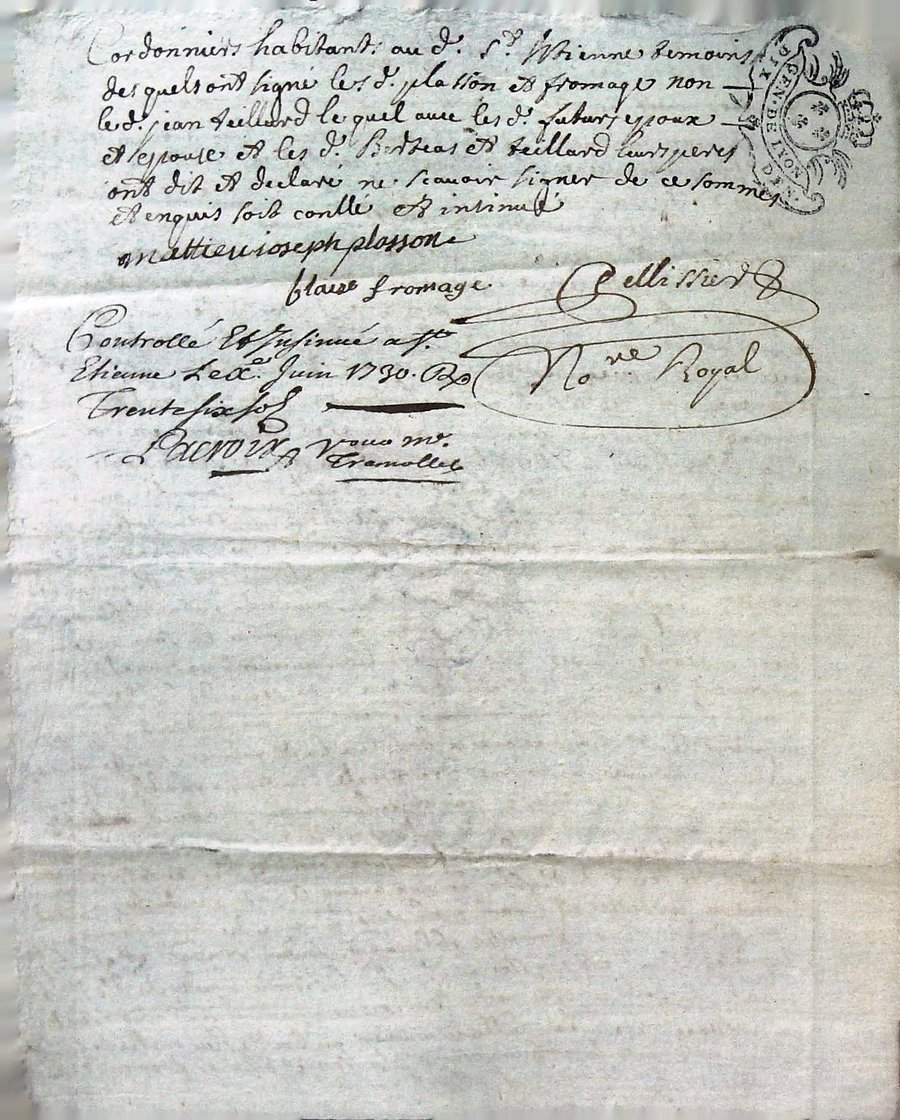 Cordonniers habitants au d. St Etienne temoins
desquels ont signé les d. plasson et fromage non
le d. jean teillard lequel avec les d. futurs epoux
et epouse et les d. Berteas et teillard leurs peres
ont dit et declaré ne scavoir signer de ce sommés
et enquis soit conllé et intinué
mattieu ioseph plasson
blaise fromage
Pellissier
Nore Royal
Controllé Et Insinué a St.
Etienne Le xe. Juin 1730. R
Trente six sol
Lacroix
DIX
GEN. DE
LION